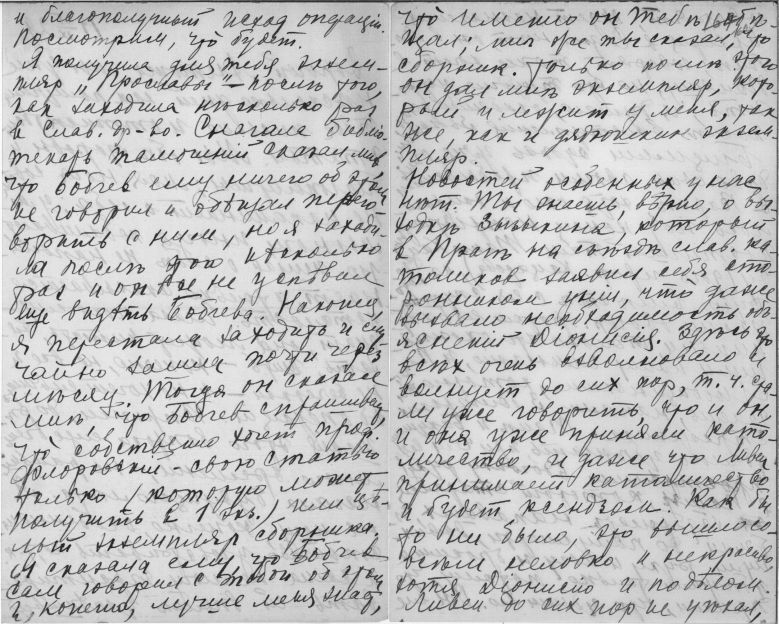 и благополучный исход операціи.
Посмотрим, что будет.
Я получила для тебя экзем-
пляр „Прославы" – послѣ того,
как заходила нѣсколько раз
в Слав. Др-во. Сначала библіо-
текарь тамошній сказал мнѣ,
что Бобчев ему ничего об этом
не говорил и обѣщал перего-
ворить с ним, но я заходи-
ла послѣ того нѣсколько
раз и он все не успѣвал
еще видѣть Бобчева. Наконец,
я перестала заходить и слу-
чайно зашла почти через
мѣсяц. Тогда он сказал
мнѣ, что Бобчев спрашивал,
что собственно хочет проф.
Флоровскій – свою статью
только (которую может
получить в 1 экз.) или цѣ-
лый экземпляр сборника.
Я сказала ему, что Бобчев
сам говорил с тобой об этом
и, конечно, лучше меня знает,
что именно он тебѣ обѣ-
щал; мнѣ же ты сказал, что
сборник. Только послѣ этого
он дал мнѣ экземпляр, кото-
рый и лежит у меня, так
же, как и дядюшкин экзем-
пляр.
Новостей особенных у нас
нѣт. Ты знаешь, вѣрно, о вы-
ходкѣ Зызыкина, который
в Прагѣ на съѣздѣ слав. ка-
толиков заявил себя сто-
ронником уніи, что даже
вызвало необходимость объ-
ясненій Діонисія. Здѣсь это
всѣх очень взволновало и
волнует до сих пор, т. ч. ста-
ли уже говорить, что и он,
и она уже приняли като-
личество, и даже что Ливен
принимает католичество
и будет ксендзом. Как бы
то ни было, это вышло со-
всѣм неловко и некрасиво,
хотя Діонисію и подѣлом.
Ливен до сих пор не уѣхал,